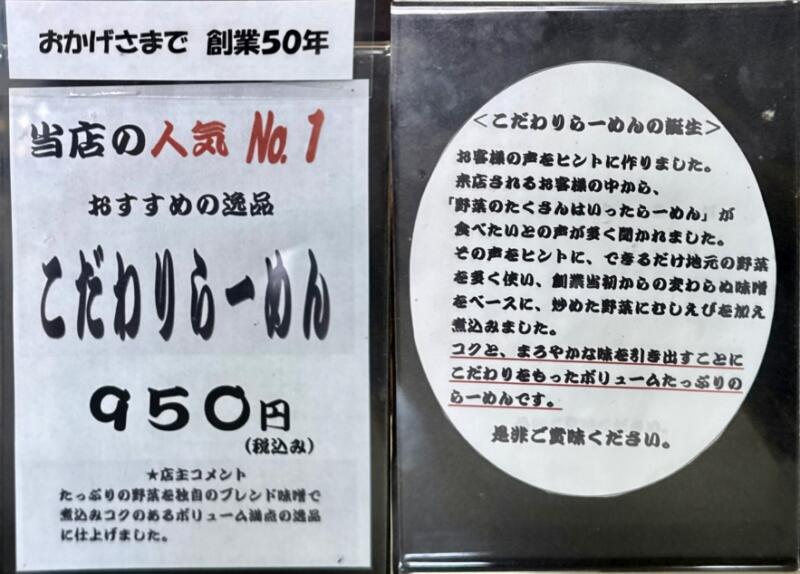 おかげさまで 創業50年
当店の人気 No.1
おすすめの逸品
こだわりらーめん
950円
(税込み)
★店主コメント
たっぷりの野菜を独自のブレンド味噌で
煮込みコクのあるボリューム満点の逸品
に仕上げました。
<こだわりらーめんの誕生>
お客様の声をヒントに作りました。
来店されるお客様の中から、
「野菜のたくさんはいったらーめん」が
食べたいとの声が多く聞かれました。
その声をヒントに、できるだけ地元の野菜
を多く使い、創業当初からの変わらぬ味噌
をベースに、炒めた野菜にむしえびを加え
煮込みました。
コクと、まろやかな味を引き出すことに
こだわりをもったボリュームたっぷりの
らーめんです。
是非ご賞味ください。